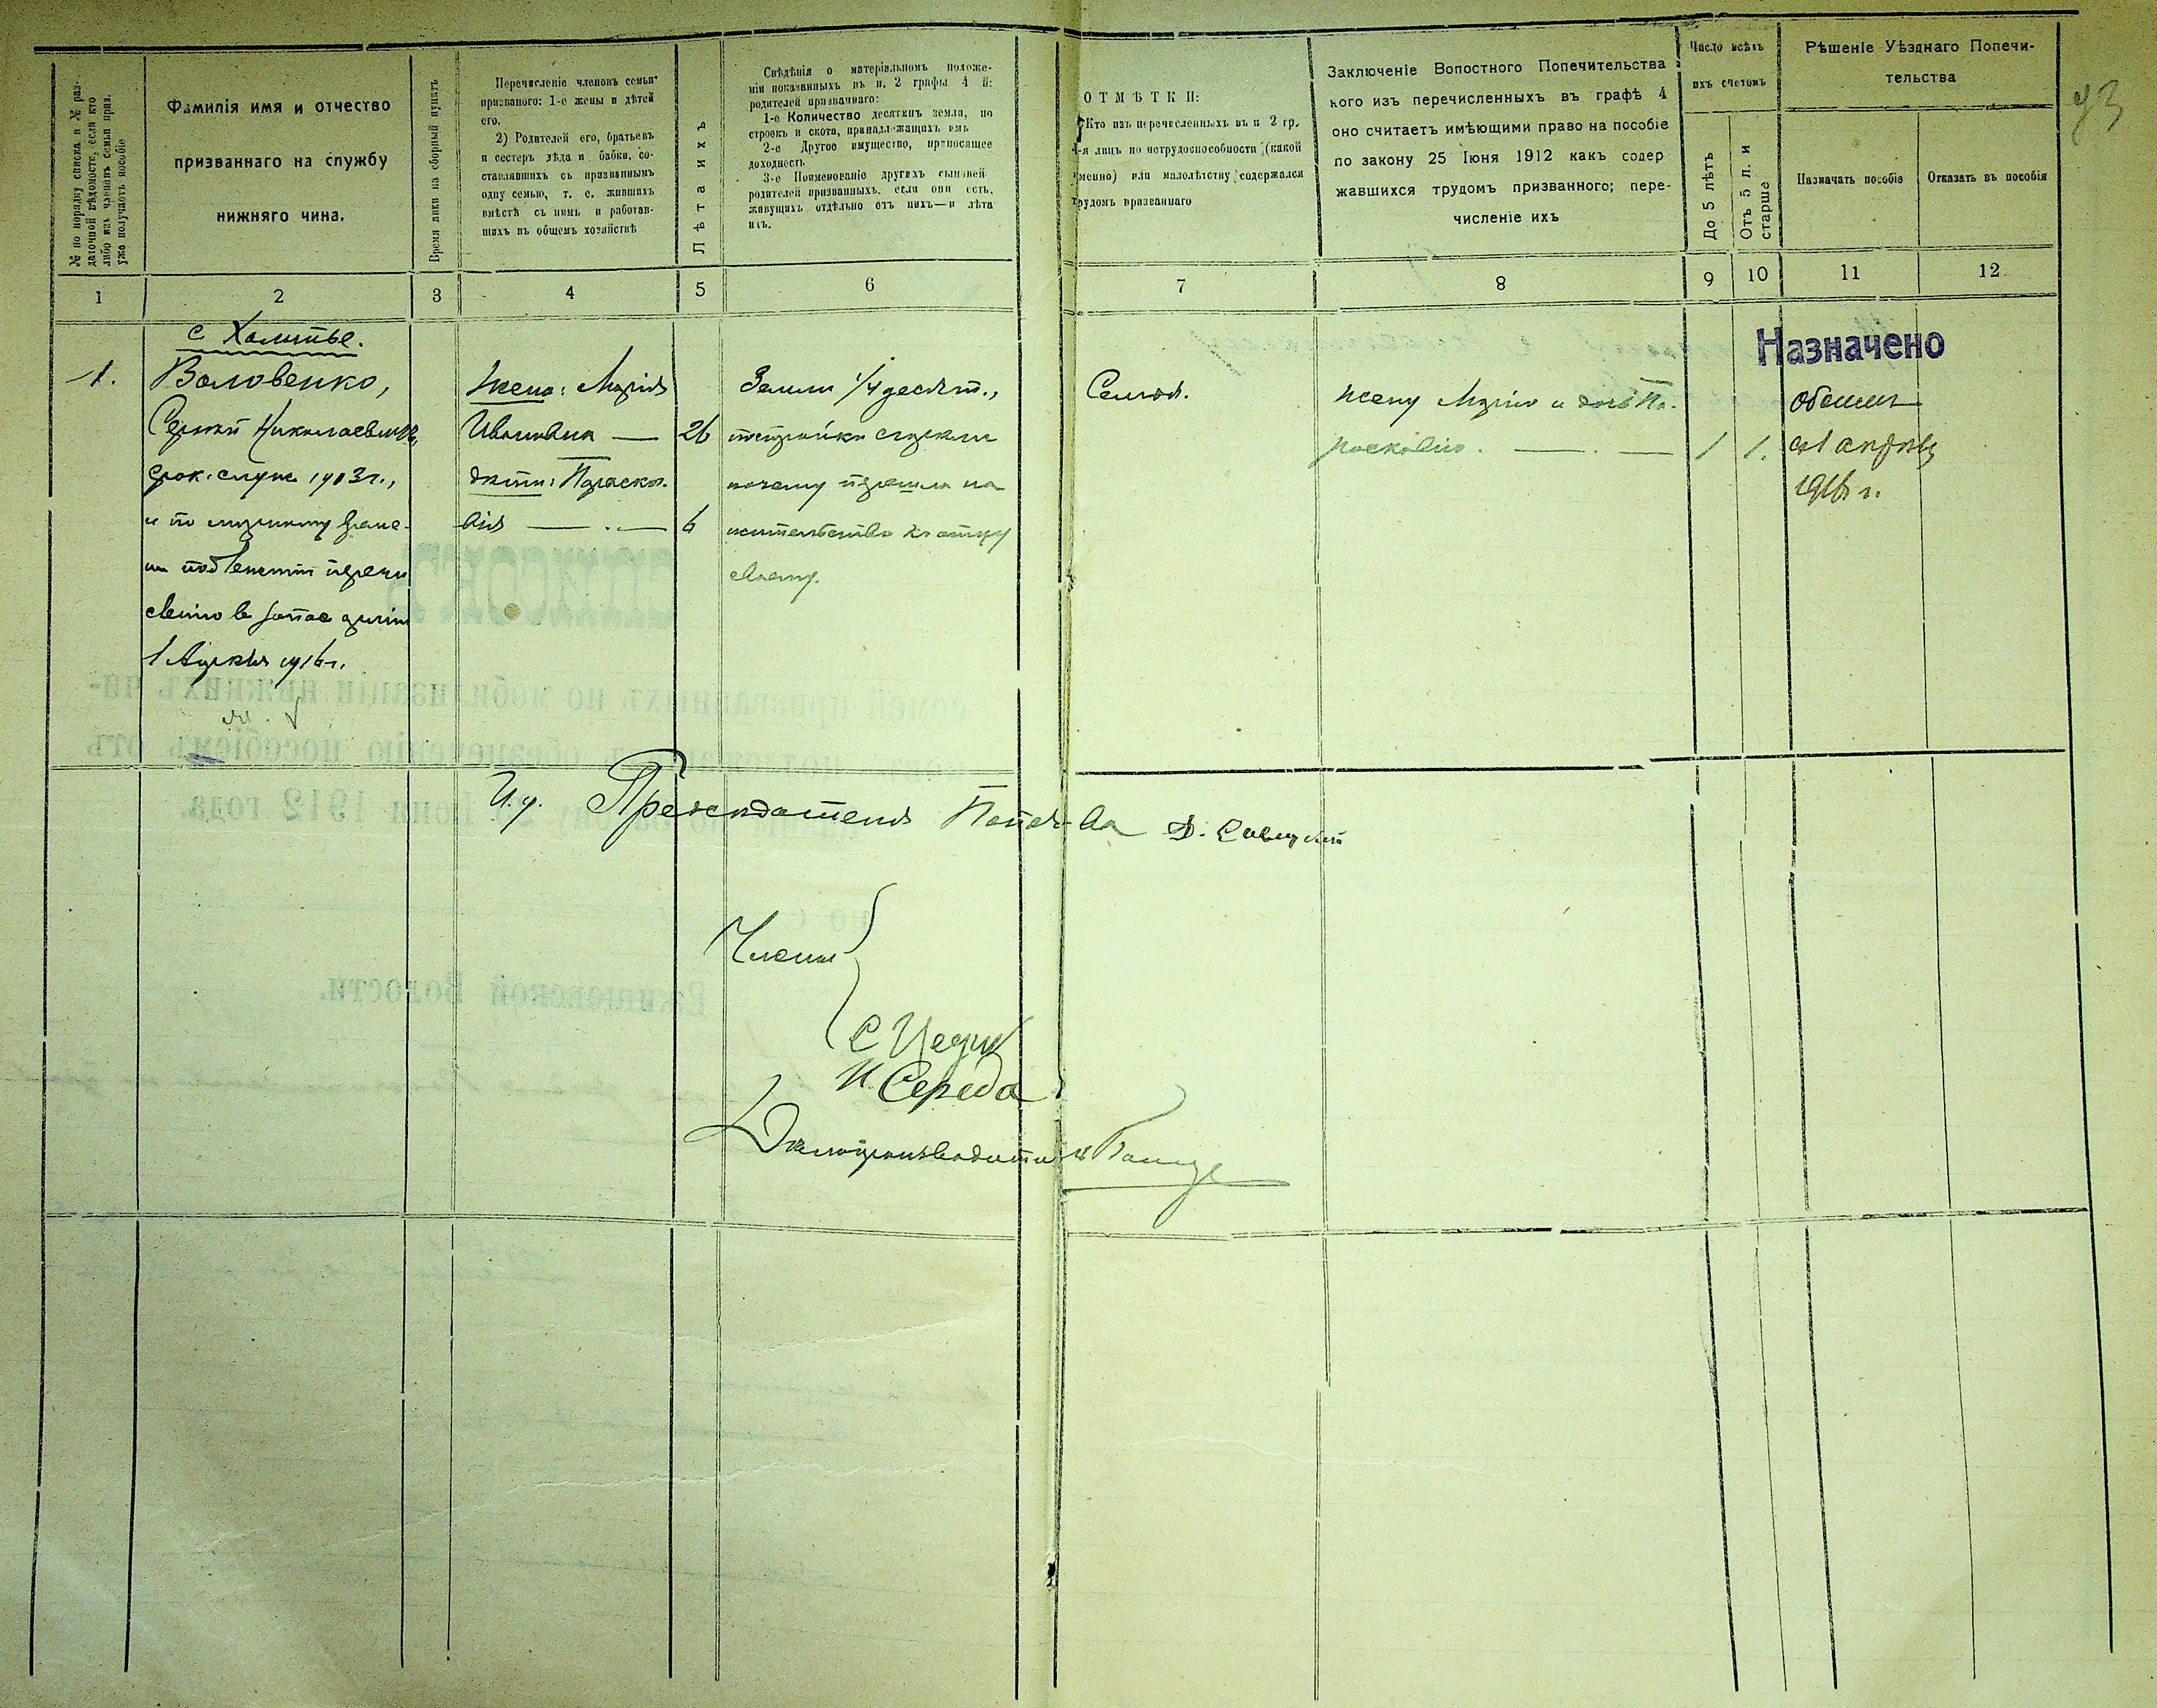 93
№ по порядку списка и № раз-
даточной вѣдомости, если кто
либо изъ членовъ семьи приз.
уже получаетъ пособіе
Фамилія имя и отчество
призваннаго на службу
нижняго чина.
Время явки на сборный пунктъ
Перечисленіе членовъ семьи
призваного: 1-е жены и дѣтей
его.
2) Родителей его, братьевъ
и сестеръ дѣда и бабки, со-
ставлявшихъ съ призваннымъ
одну семью, т. е. жившихъ
вмѣстѣ съ нимъ и работав-
шихъ въ общемъ хозяйствѣ
Лѣта ихъ
Свѣдѣнія о матеріальномъ положе-
ніи показанныхъ въ п. 2 графы 4 й:
родителей призваннаго:
1-е Количество десятинъ земли, по
строекъ и скота, принадлежащихъ имъ
2-е Другое имущество, приносящее
доходность
3-е Поименованіе другихъ сыновей
родителей призванныхъ, если они есть,
живущихъ отдѣльно отъ нихъ—и лѣта
ихъ.
ОТМѢТКИ:
Кто изъ перечисленныхъ въ п 2 гр.
4-я лицъ по нетрудоспособности (какой
именно) или малолѣтству содержался
трудомъ призваннаго
Заключеніе Вопостного Попечительства
кого изъ перечисленныхъ въ графѣ 4
оно считаетъ имѣющими право на пособіе
по закону 25 Іюня 1912 какъ содер
жавшихся трудомъ призванного; пере-
численіе ихъ
Число всѣхъ
ихъ счетомъ
До 5 лѣтъ
Отъ 5 л. и
старше
Рѣшеніе Уѣзднаго Попечи-
тельства
Назначать пособіе
Отказать въ пособія
1 2 3 4 5 6 7 8 9 10 11 12
с Халитье.
1.
Воловенко,
Сергѣй Николаевичъ,
срок. служ. 1903 г.,
1 Апрѣля 1916 г.
Жена: Марія
Ивановна — 26
дѣти: Параске-
вія — 6
Земли 1/4 десят.,
постройки сгорѣли
почему перешла на
жительство къ отцу
своему.
Семья.
жену Марію и дочь Па-
раскевію. — 1 1.
Назначено
обоимъ
съ 1 апрѣля
1916 г.
И. д. Предсѣдателя Попеч-ва Д. Савицкій
Члены
Н. Середа
Дѣлопроизводитель